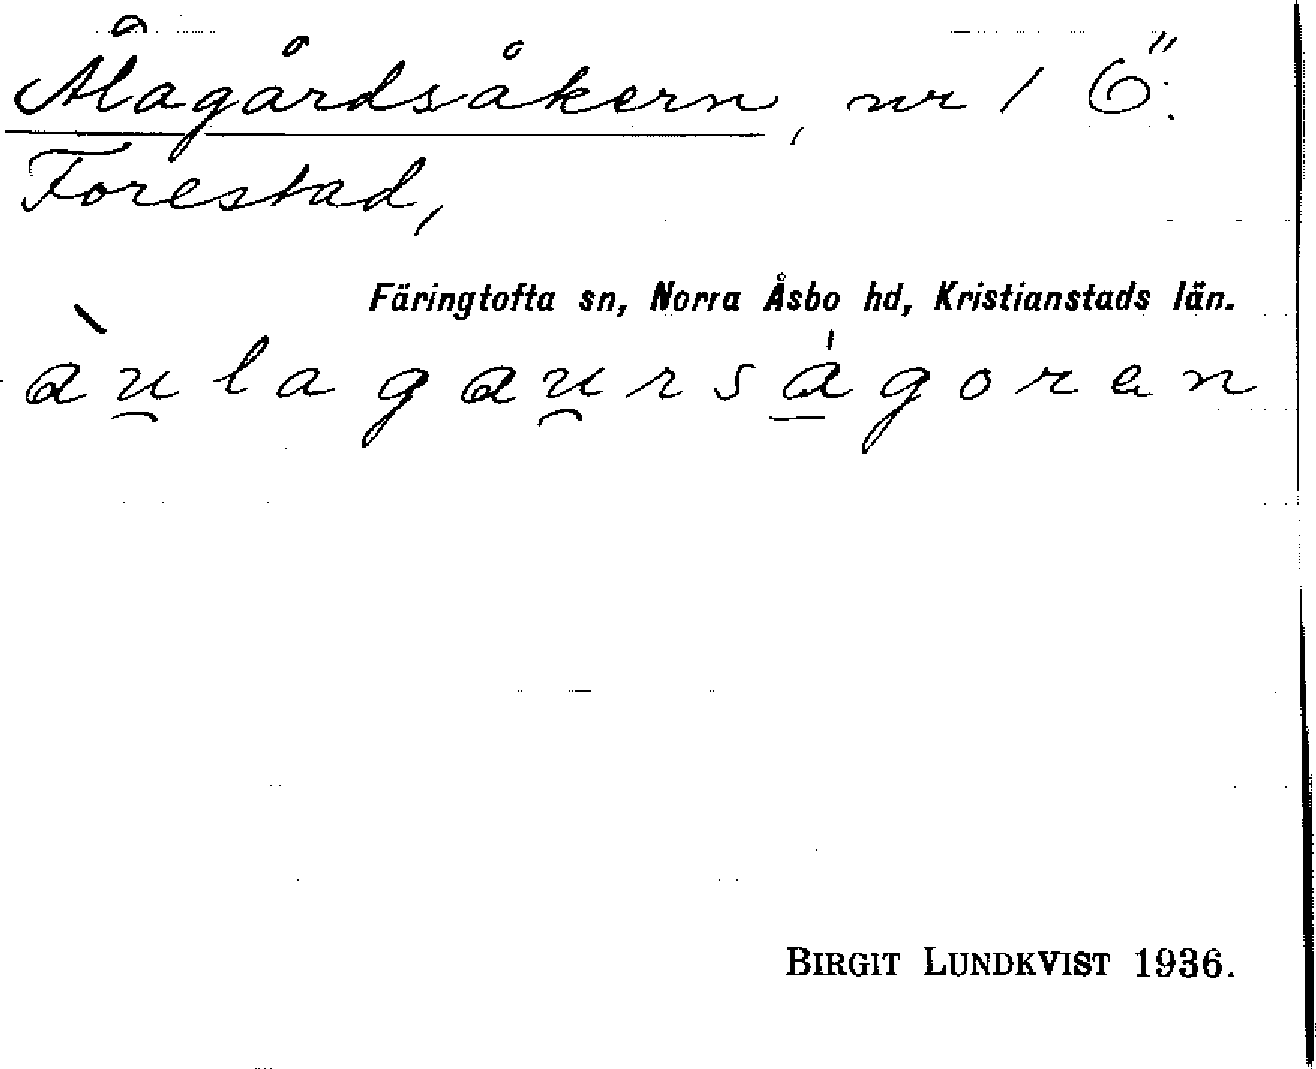 Ålagårdsåkern, nr 1 Ö.
Forestad,
Färingtofta sn, Norra Åsbo hd, Kristianstads län.
àu̯lagau̯rsa̠̍goran
BIRGIT LUNDKVIST 1936.